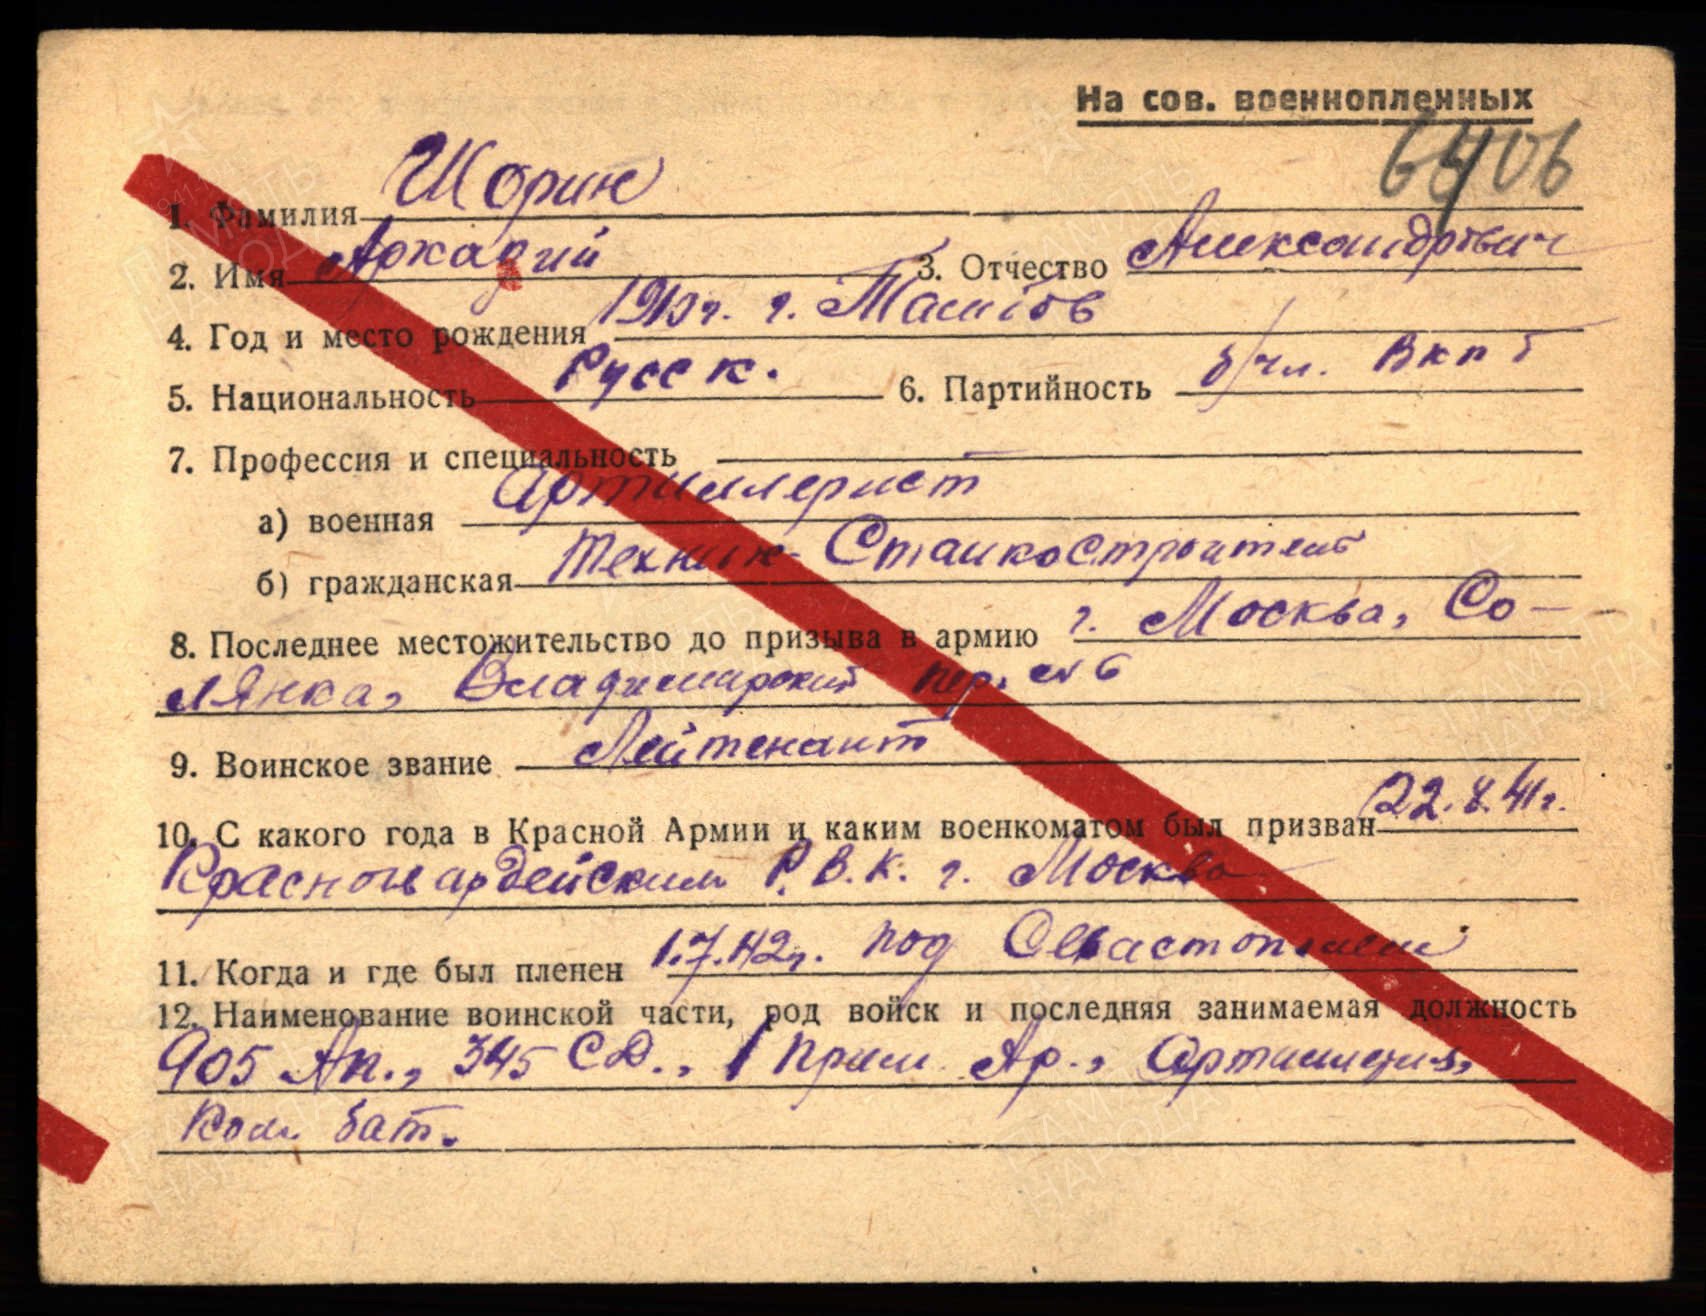 На сов. военнопленных
6406
1. Фамилия Шорин
2. Имя Аркадий 3. Отчество Александрович
4. Год и место рождения г. Тамбов
5. Национальность Русск. 6. Партийность б/чл. ВКП б
7. Профессия и специальность
а) военная Артиллерист
б) гражданская Техник-Станкостроитель
8. Последнее местожительство до призыва в армию г. Москва, Со-
лянка, Владимирский пер. № 6
9. Воинское звание Лейтенант
10. С какого года в Красной Армии и каким военкоматом был призван
Красногвардейским Р.В.К. г. Москва
11. Когда и где был пленен 1.7.42г. под Севастополем
12. Наименование воинской части, род войск и последняя занимаемая должность
905 Ап., 345 СД., 1 Прим. Ар., Артиллерия,
Ком. бат.
ПАМЯТЬ НАРОДА